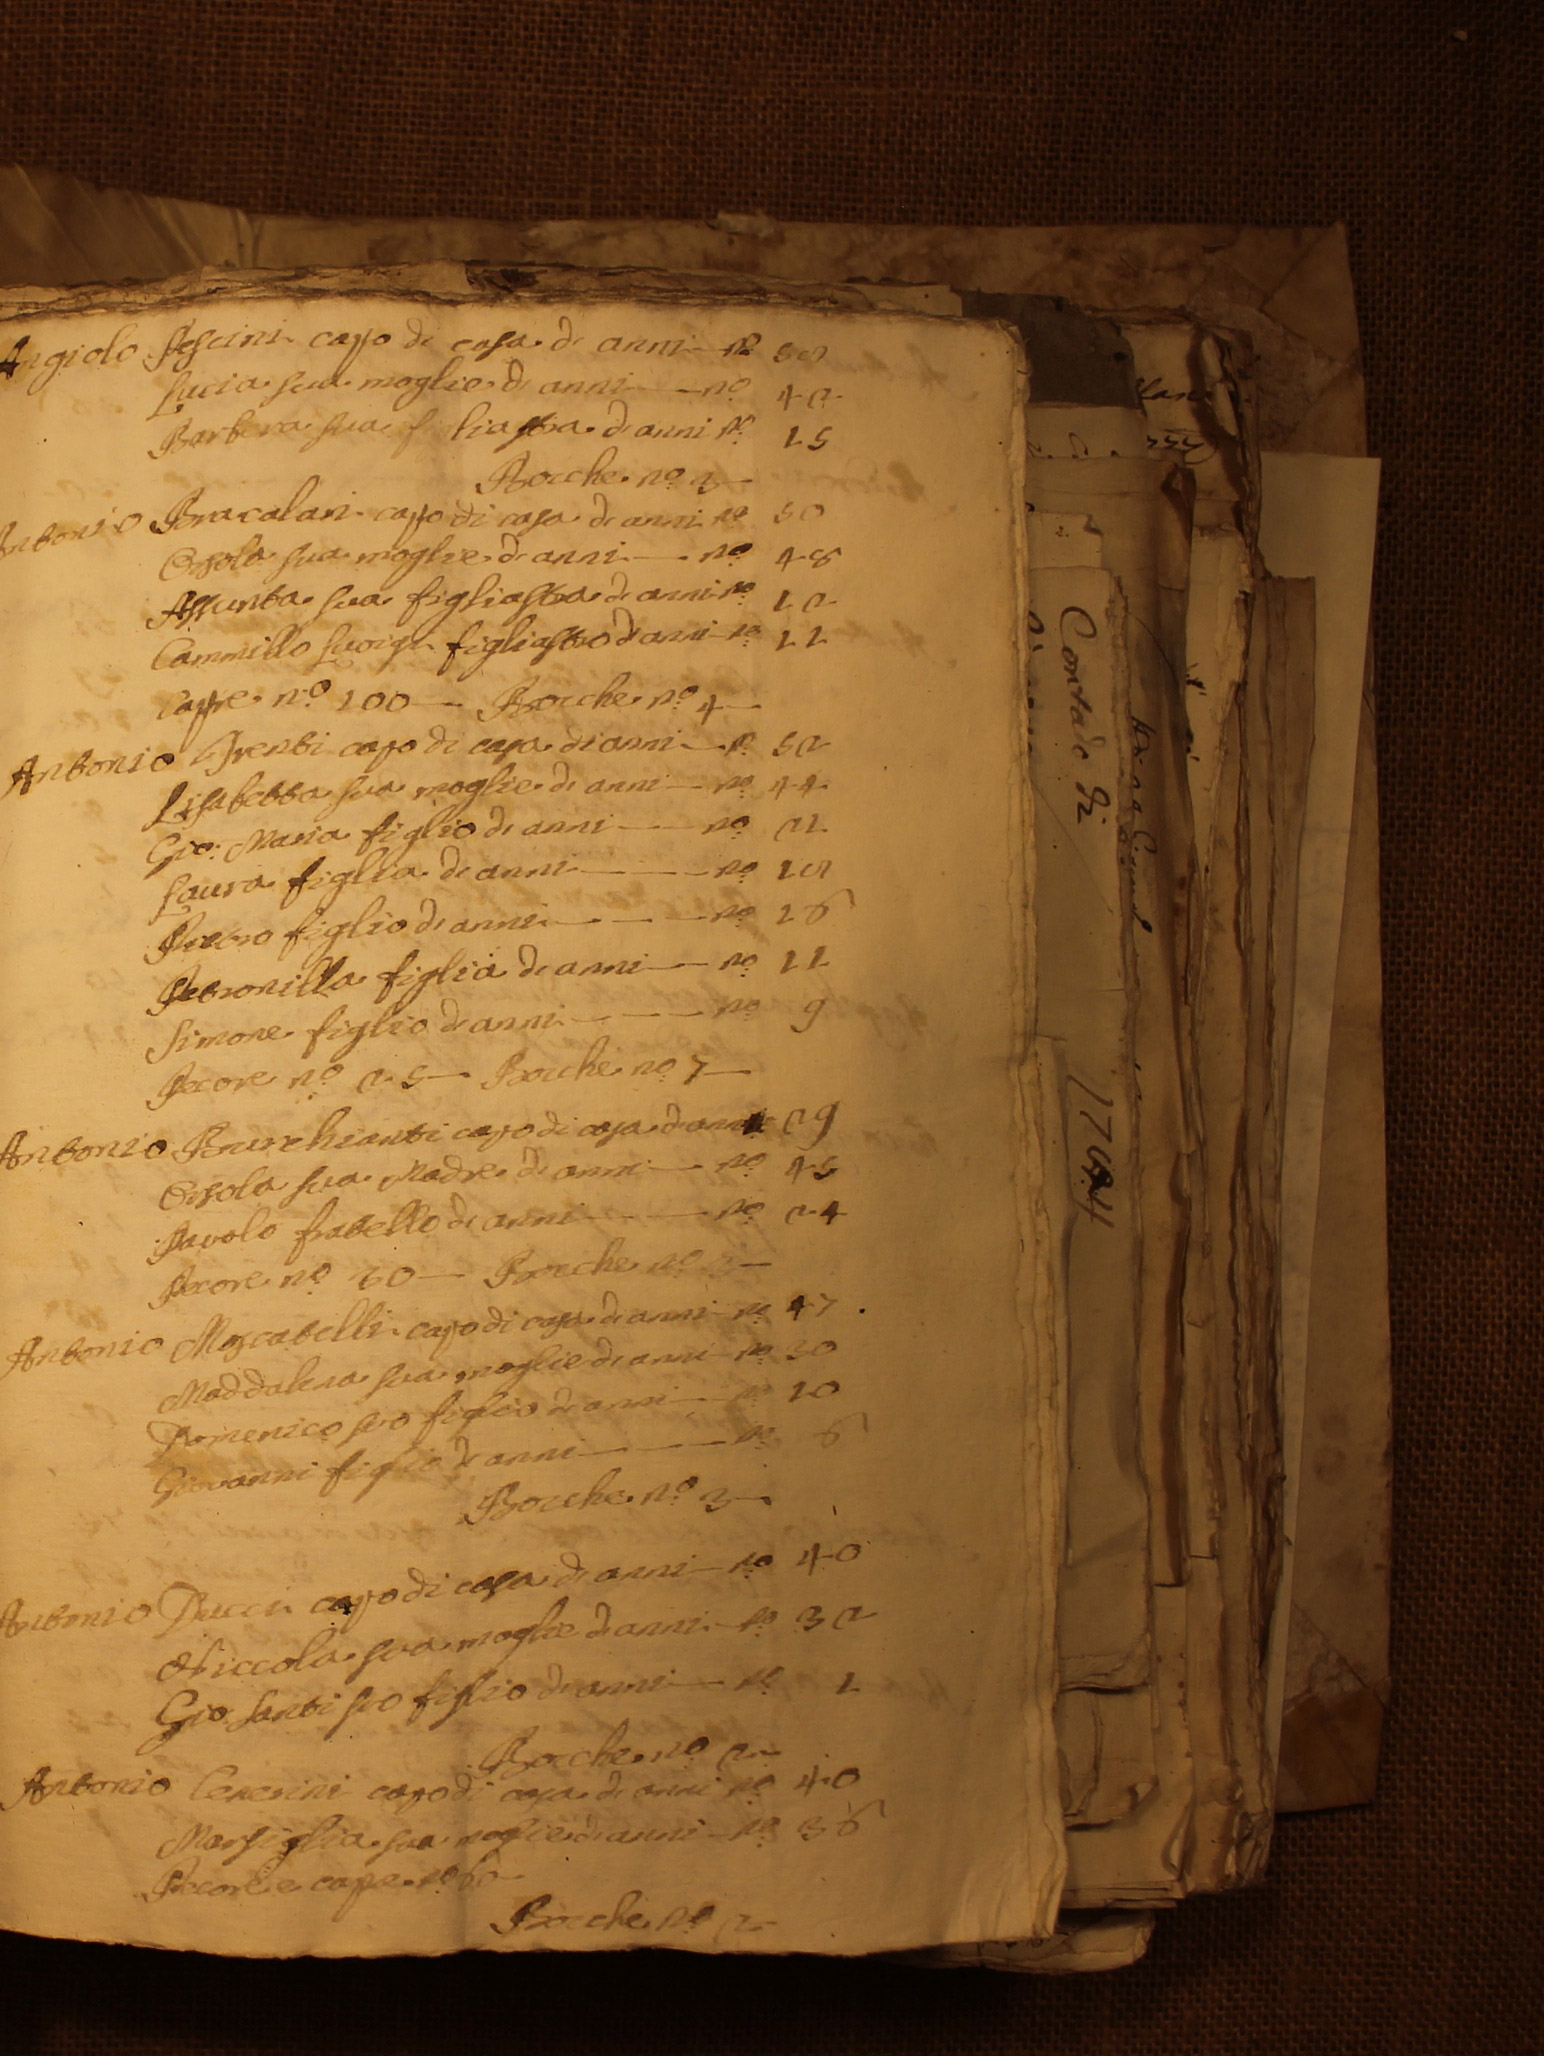 Angiolo Pescini capo di casa di anni n.º 58
Lucia sua moglie di anni — n.º 42
Barbera sua figliastra di anni n.º 15
Bocche n.º 3
Antonio Bracalari capo di casa di anni n.º 50
Orsola sua moglie di anni — n.º 48
Assunta sua figliastra di anni n.º 12
Cammillo Luoigi figliastro di anni n.º 11
Capre n.º 100 — Bocche n.º 4
Antonio Trenti capo di casa di anni n.º 52
Lisabetta sua moglie di anni n.º 44
Gio: Maria figlio di anni — n.º 21
Laura figlia di anni — n.º 18
Pietro figlio di anni — n.º 16
Petronilla figlia di anni — n.º 11
Simone figlio di anni — n.º 9
Pecore n.º 25 — Bocche n.º 7
Antonio Burchianti capo di casa di anni 29
Orsola sua Madre di anni — n.º 45
Pavolo fratello di anni — n.º 24
Pecore n.º 60 — Bocche n.º 3
Antonio Moscatelli capo di casa di anni n.º 47
Maddalena sua moglie di anni n.º 30
Domenico suo figlio di anni — n.º 10
Giovanni figlio di anni — n.º 6
Bocche n.º 3
Antonio Ducci capo di casa di anni n.º 40
Niccola sua moglie di anni n.º 32
Gio Santi suo figlio di anni — n.º 1
Bocche n.º 2
Antonio Cenerini capo di casa di anni n.º 40
Marsiglia sua moglie di anni n.º 36
Pecore e capre n.º 60
Bocche n.º 2
Contado di
1764